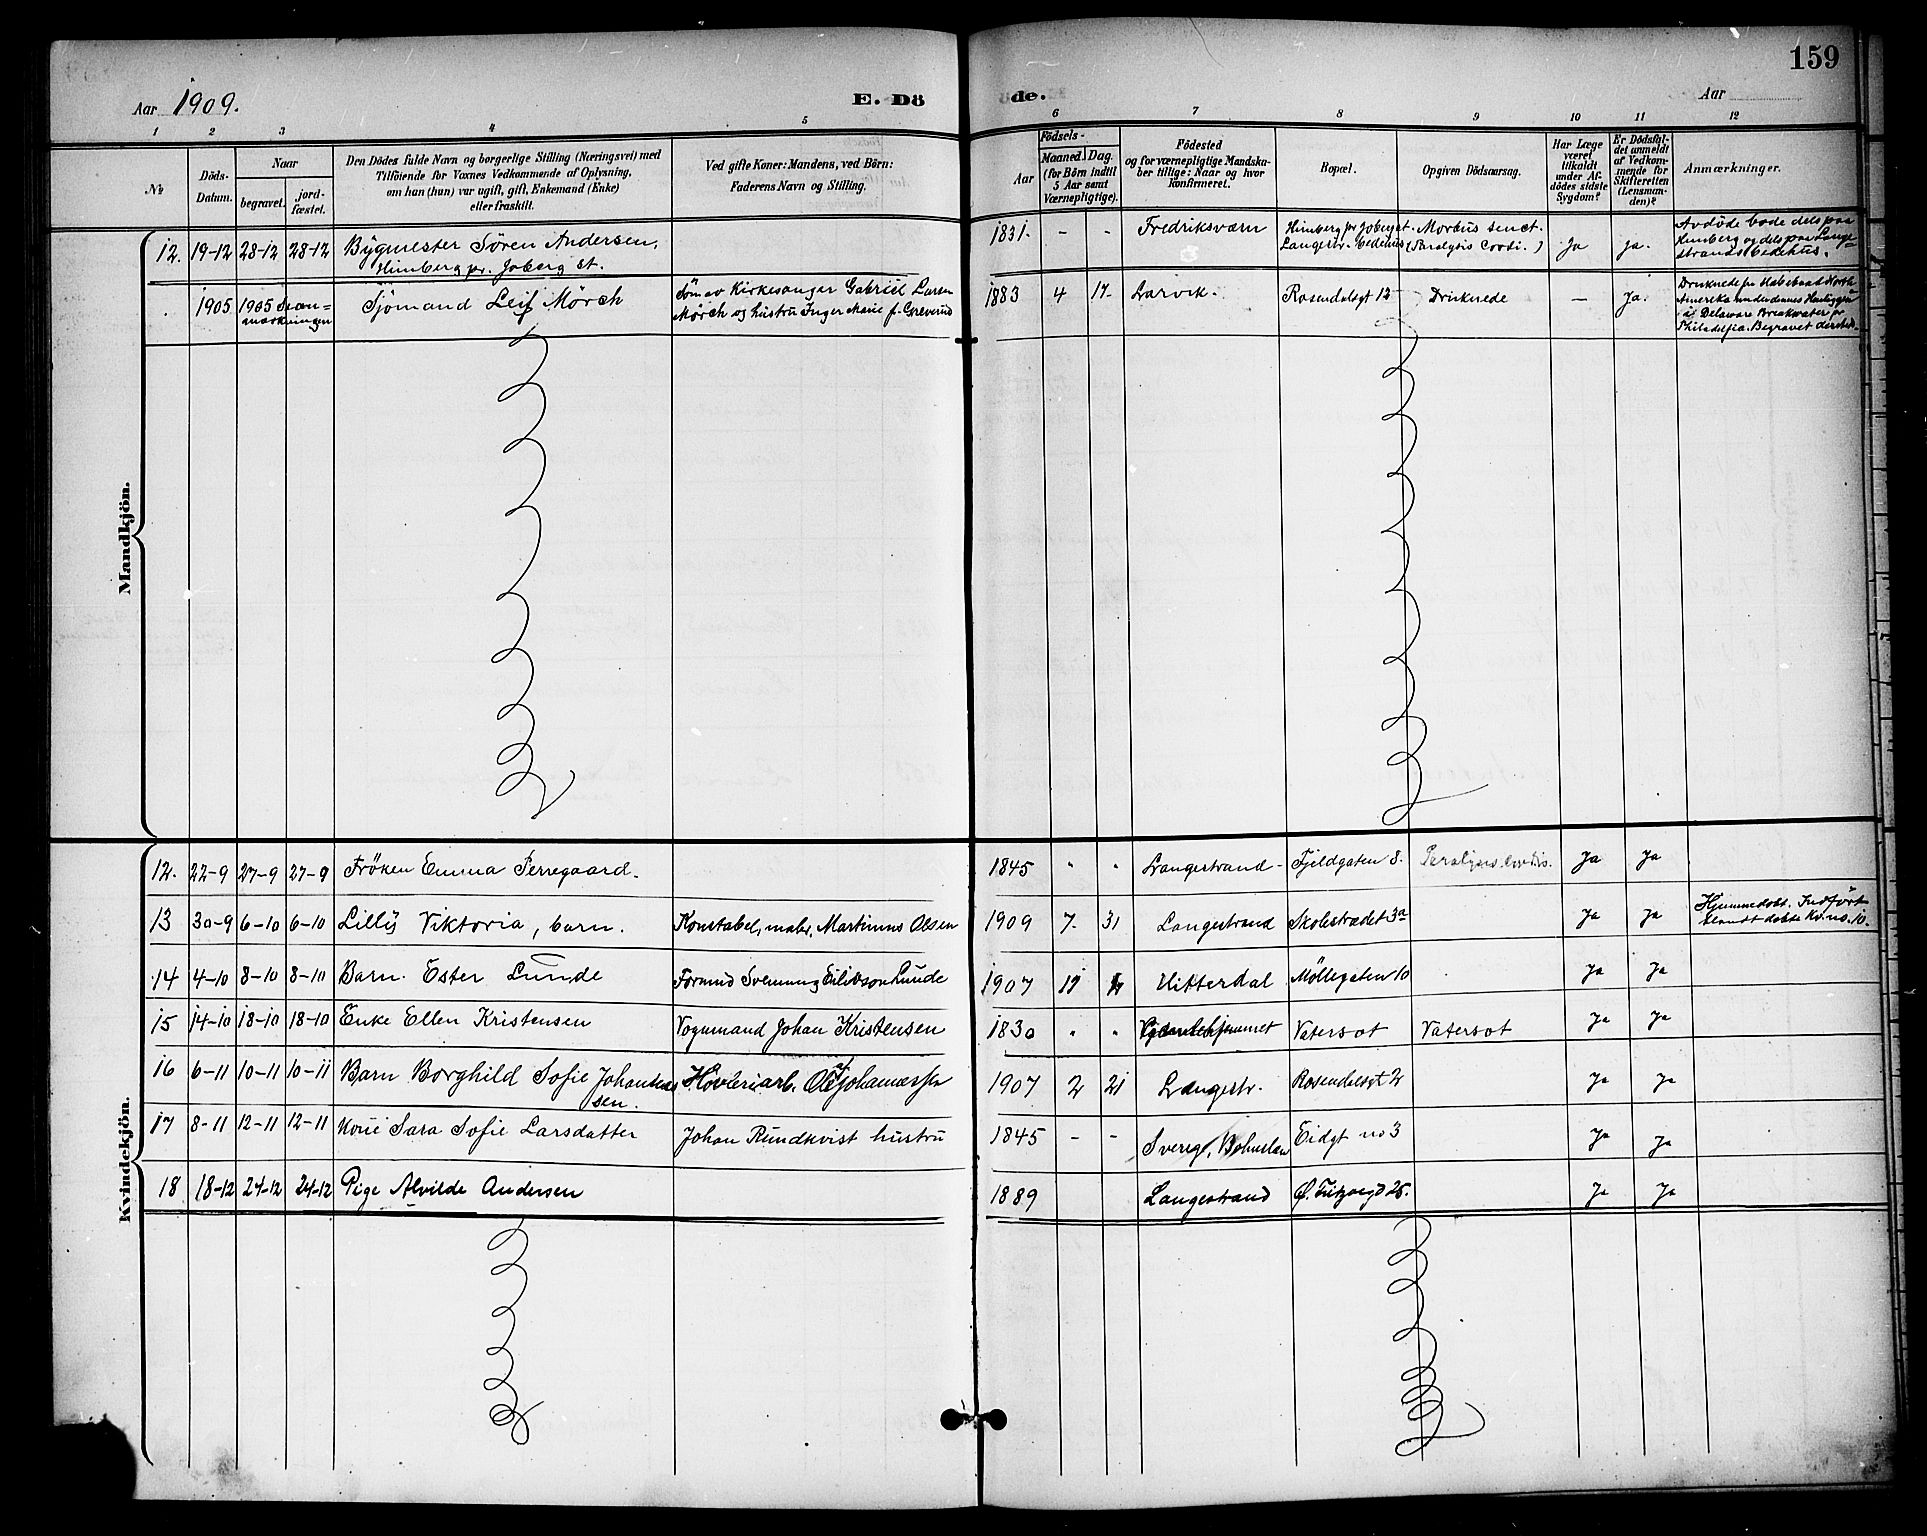 159
Aar 1909.
E. Dö
de.
Aar
1 2 3 4 5 6 7 8 9 10 11 12
No
Döds-
Datum.
Naar
begravet.
jord-
fæstet.
Den Dödes fulde Navn og borgerlige Stilling (Næringsvei) med
Tilföiende for Voxnes Vedkommende af Oplysning,
om han (hun) var ugift, gift, Enkemand (Enke)
eller fraskilt.
Ved gifte Koner: Mandens, ved Börn:
Faderens Navn og Stilling.
Födsels-
Aar
Maaned. Dag.
(for Börn indtil
5 Aar samt
Værnepligtige).
Födested
og for værnepligtige Mandska-
ber tillige: Naar og hvor
konfirmeret.
Bopæl.
Opgiven Dödsaarsag.
Har Læge
været
tilkaldt
under Af-
dödes sidste
Sygdom?
Er Dödsfal-
det anmeldt
af Vedkom-
mende for
Skifteretten
(Lensman-
den)?
Anmærkninger.
Mandkjön.
12. 19-12 28-12 28-12 Bygmester Sören Andersen,
Himberg pr. Joberg st.
1831. - - Fredriksværn
Himberg pr Joberg st.
Langestr. bedehus
Morbus senct.
(Paralysis Cordi.)
Ja ja.
Avdöde bode dels paa
Himberg og dels paa Lange-
strands bedehus.
1905 1905 Se an-
mærkningen
Sjömand Leif Mörch
Sön av Kirkesanger Gabriel Larsen
Mörch og hustru Inger Marie f. Greverud
1883 4 17 Larvik. Rosendalsgt 12 Druknede - Ja.
Amerika
Delaware Breakwater pr
Philadelfia. Begravet dersteds.
Kvindekjön.
12. 22-9 27-9 27-9 Fröken Emma Perregaard.
1845 " " Langestrand - Fjeldgaten 8. Paralysis cordis. Ja Ja
13 30-9 6-10 6-10 Lilly Viktoria, barn. Konstabel, maler, Martinius Olsen
1909 7. 31 Langestrand Skolestrædet 3a Ja Ja
Hjemmedöbt. Indfört
blandt döbte Kv. no. 10.
14 4-10 8-10 8-10 Barn Ester Lunde Formid Svennung Eilivson Lunde
1907 Hitterdal Möllegaten 10 Ja Ja
15 14-10 18-10 18-10 Enke Ellen Kristensen Vognmand Johan Kristensen
1830 " " Vatersot Vatersot Ja Ja
16 6-11 10-11 10-11 Barn Borghild Sofie Johannes
sen. Hövleriarb. Ole Johannessen
1907 2 21 Langestr. Rosendalsgt 2 Ja Ja
17 8-11 12-11 12-11 Kone Sara Sofie Larsdatter Johan Rundkvist hustru
1845 - - Sverige, Bohuslen Eidgt no 3 Ja Ja
18 18-12 24-12 24-12 Pige Alvilde Andersen
1889 Langestrand Ja Ja